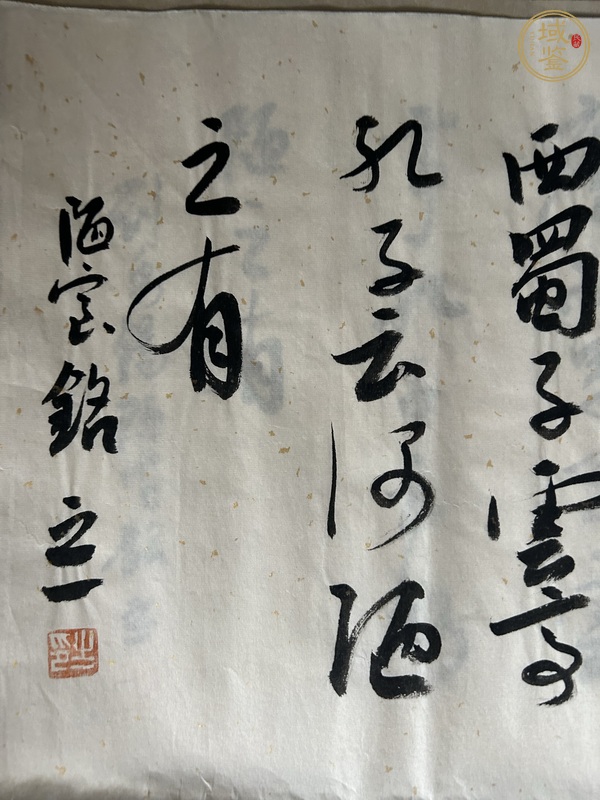 西蜀子雲亭
孔子云何陋
之有
陋室銘 之一
域鉴